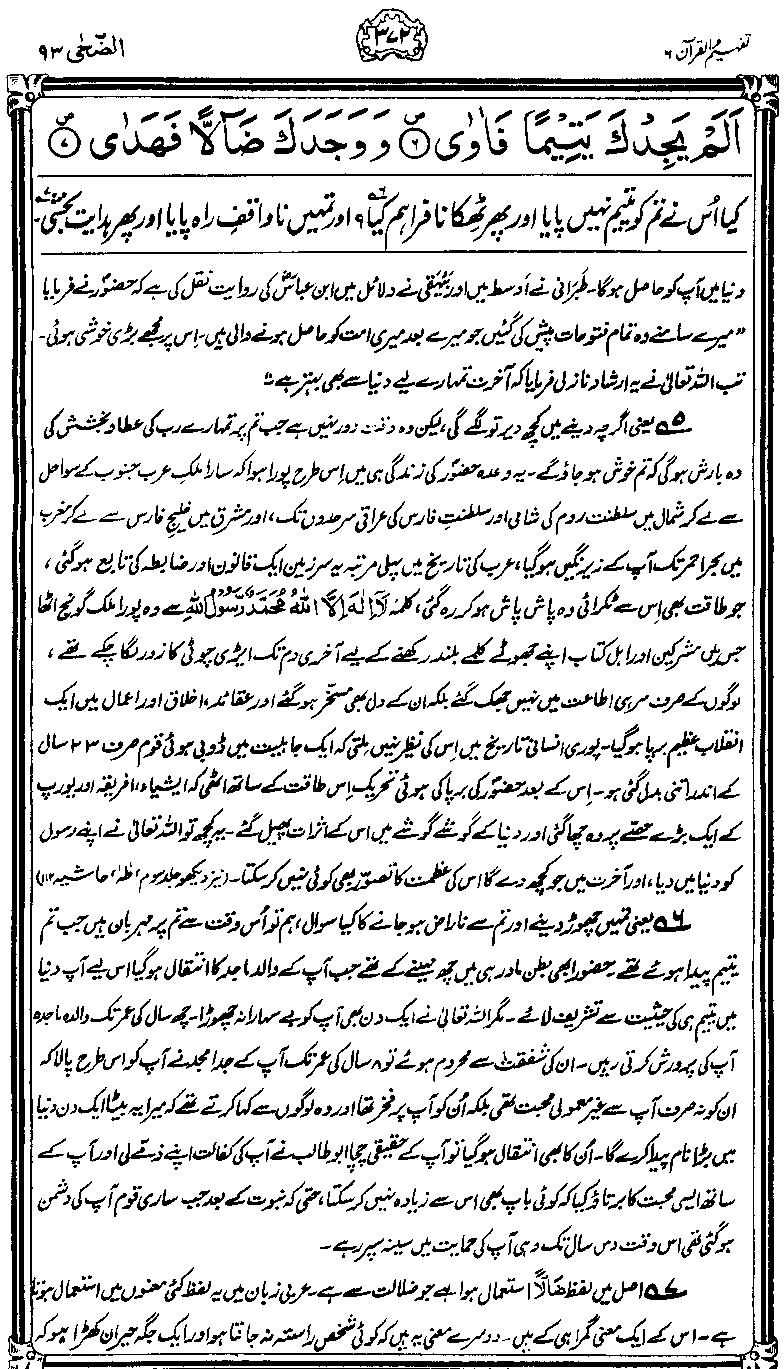 تفہیم القرآن ۶
۳۷۲
الضحٰی ۹۳
اَلَمْ یَجِدْكَ یَتِیْمًا فَاٰوٰى ۪﴿۶﴾ وَ وَجَدَكَ ضَآلًّا فَهَدٰى ۪﴿۷﴾
کیا اُس نے تم کو یتیم نہیں پایا اور پھر ٹھکانا فراہم کیا؟۶ اور تمہیں ناواقفِ راہ پایا اور پھر ہدایت بخشی۷۔
دنیا میں آپ کو حاصل ہوگا۔ طَبَرانی نے اَوسط میں اور بَیْہَقی نے دلائل میں ابن عباسؓ کی روایت نقل کی ہے کہ حضورؐ نے فرمایا
”میرے سامنے وہ تمام فتوحات پیش کی گئیں جو میرے بعد میری امت کو حاصل ہونے والی ہیں۔ اِس پر مجھے بڑی خوشی ہوئی۔
تب اللہ تعالیٰ نے یہ ارشاد نازل فرمایا کہ آخرت تمہارے لیے دنیا سے بھی بہتر ہے“
۵ یعنی اگرچہ دینے میں کچھ دیر تو لگے گی، لیکن وہ وقت دور نہیں ہے جب تم پر تمہارے رب کی عطا و بخشش کی
وہ بارش ہوگی کہ تم خوش ہو جاؤ گے۔ یہ وعدہ حضورؐ کی زندگی ہی میں اِس طرح پورا ہوا کہ سارا ملکِ عرب جنوب کے سواحل
سے لے کر شمال میں سلطنت روم کی شامی اور سلطنتِ فارس کی عراقی سرحدوں تک، اور مشرق میں خلیج فارس سے لے کر مغرب
میں بحر احمر تک آپ کے زیرِ نگیں ہوگیا، عرب کی تاریخ میں پہلی مرتبہ یہ سرزمین ایک قانون اور ضابطہ کی تابع ہوگئی،
جو طاقت بھی اِس سے ٹکرائی وہ پاش پاش ہو کر رہ گئی، کلمۂ لَا اِلٰهَ اِلَّا اللهُ مُحَمَّدٌ رَّسُوْلُ اللهِ سے وہ پورا ملک گونج اٹھا
جس میں مشرکین اور اہل کتاب اپنے جھوٹے کلمے بلند رکھنے کے لیے آخری دم تک ایڑی چوٹی کا زور لگا چکے تھے،
لوگوں کے صرف سر ہی اطاعت میں نہیں جھک گئے بلکہ ان کے دل بھی مسخّر ہوگئے اور عقائد، اخلاق اور اعمال میں ایک
انقلاب عظیم برپا ہوگیا۔ پوری انسانی تاریخ میں اِس کی نظیر نہیں ملتی کہ ایک جاہلیت میں ڈوبی ہوئی قوم صرف ۲۳ سال
کے اندر اتنی بدل گئی ہو۔ اِس کے بعد حضورؐ کی برپا کی ہوئی تحریک اِس طاقت کے ساتھ اٹھی کہ ایشیاء، افریقہ اور یورپ
کے ایک بڑے حصّے پر وہ چھا گئی اور دنیا کے گوشے گوشے میں اس کے اثرات پھیل گئے۔ یہ کچھ تو اللہ تعالیٰ نے اپنے رسول
کو دنیا میں دیا، اور آخرت میں جو کچھ دے گا اس کی عظمت کا تصور بھی کوئی نہیں کر سکتا۔ (نیز دیکھو جلد سوم، طٰہٰ، حاشیہ ۱۱۲)
۶ یعنی تمہیں چھوڑ دینے اور تم سے ناراض ہو جانے کا کیا سوال، ہم تو اُس وقت سے تم پر مہربان ہیں جب تم
یتیم پیدا ہوئے تھے۔ حضورؐ ابھی بطن مادر ہی میں چھ مہینے کے تھے جب آپ کے والد ماجد کا انتقال ہوگیا اس لیے آپ دنیا
میں یتیم ہی کی حیثیت سے تشریف لائے۔ مگر اللہ تعالیٰ نے ایک دن بھی آپ کو بے سہارا نہ چھوڑا۔ چھ سال کی عمر تک والدہ ماجدہ
آپ کی پرورش کرتی رہیں۔ ان کی شفقت سے محروم ہوئے تو ۸ سال کی عمر تک آپ کے جد امجد نے آپ کو اس طرح پالا کہ
ان کو نہ صرف آپ سے غیر معمولی محبت تھی بلکہ اُن کو آپ پر فخر تھا اور وہ لوگوں سے کہا کرتے تھے کہ میرا یہ بیٹا ایک دن دنیا
میں بڑا نام پیدا کرے گا۔ اُن کا بھی انتقال ہوگیا تو آپ کے حقیقی چچا ابو طالب نے آپ کی کفالت اپنے ذمے لی اور آپ کے
ساتھ ایسی محبت کا برتاؤ کیا کہ کوئی باپ بھی اس سے زیادہ نہیں کر سکتا، حتیٰ کہ نبوت کے بعد جب ساری قوم آپ کی دشمن
ہوگئی تھی اس وقت دس سال تک وہی آپ کی حمایت میں سینہ سپر رہے۔
۷ اصل میں لفظ ضَالًّا استعمال ہوا ہے جو ضلالت سے ہے۔ عربی زبان میں یہ لفظ کئی معنوں میں استعمال ہوتا
ہے۔ اس کے ایک معنی گمراہی کے ہیں۔ دوسرے معنی یہ ہیں کہ کوئی شخص راستہ نہ جانتا ہو اور ایک جگہ حیران کھڑا ہو کہ